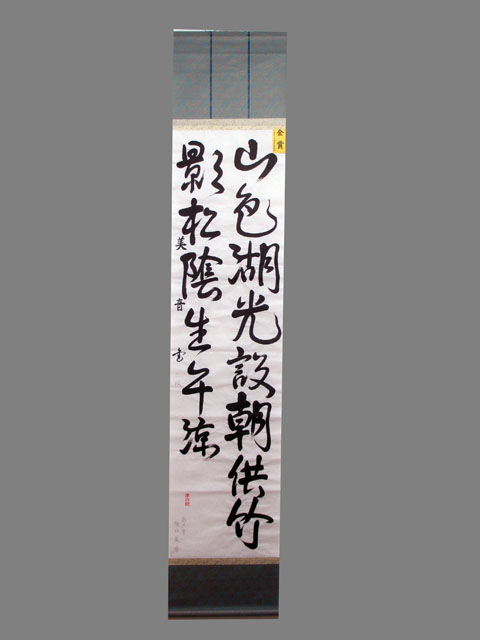 金賞
山色湖光設朝供竹
影松陰生午涼
美音書